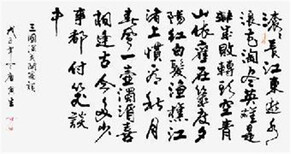 滚滚長江東逝水
浪花淘尽英雄是
非成敗轉頭空青
山依舊在幾度夕
陽紅白髮漁樵江
渚上慣看秋月
春風一壺濁酒喜
相逢古今多少
事都付笑談
中
三國演義開篇詞
戊子年